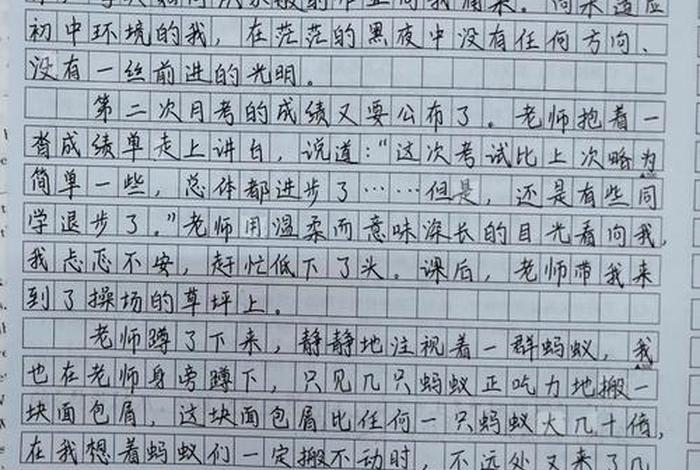 初中环境的我，在茫茫的黑夜中没有任何方向、
没有一丝前进的光明。
第二次月考的成绩又要公布了。老师抱着一
沓成绩单走上讲台，说道：“这次考试比上次略为
简单一些，总体都进步了……但是，还是有些同
学退步了。”老师用温柔而意味深长的目光看向我，
我忐忑不安，赶忙低下了头。课后，老师带我来
到了操场的草坪上。
老师蹲了下来，静静地注视着一群蚂蚁，我
也在老师身旁蹲下，只见几只蚂蚁正吃力地搬一
块面包屑，这块面包屑比任何一只蚂蚁大几十倍，
在我想着蚂蚁们一定搬不动时，不远处又来了几